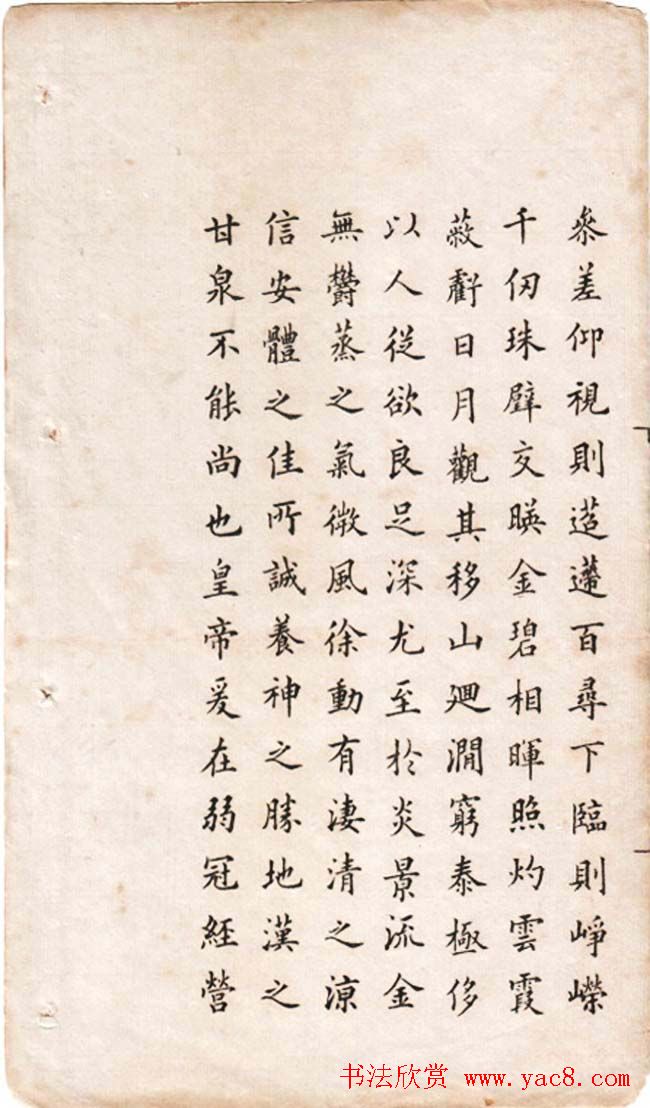 參差仰視則迢遰百尋下臨則崢嶸
千仞珠壁交暎金碧相暉照灼雲霞
蔽虧日月觀其移山迴澗窮泰極侈
以人從欲良足深尤至於炎景流金
無鬱蒸之氣微風徐動有淒清之涼
信安體之佳所誠養神之勝地漢之
甘泉不能尚也皇帝爰在弱冠經營
书法欣赏 www.yac8.com